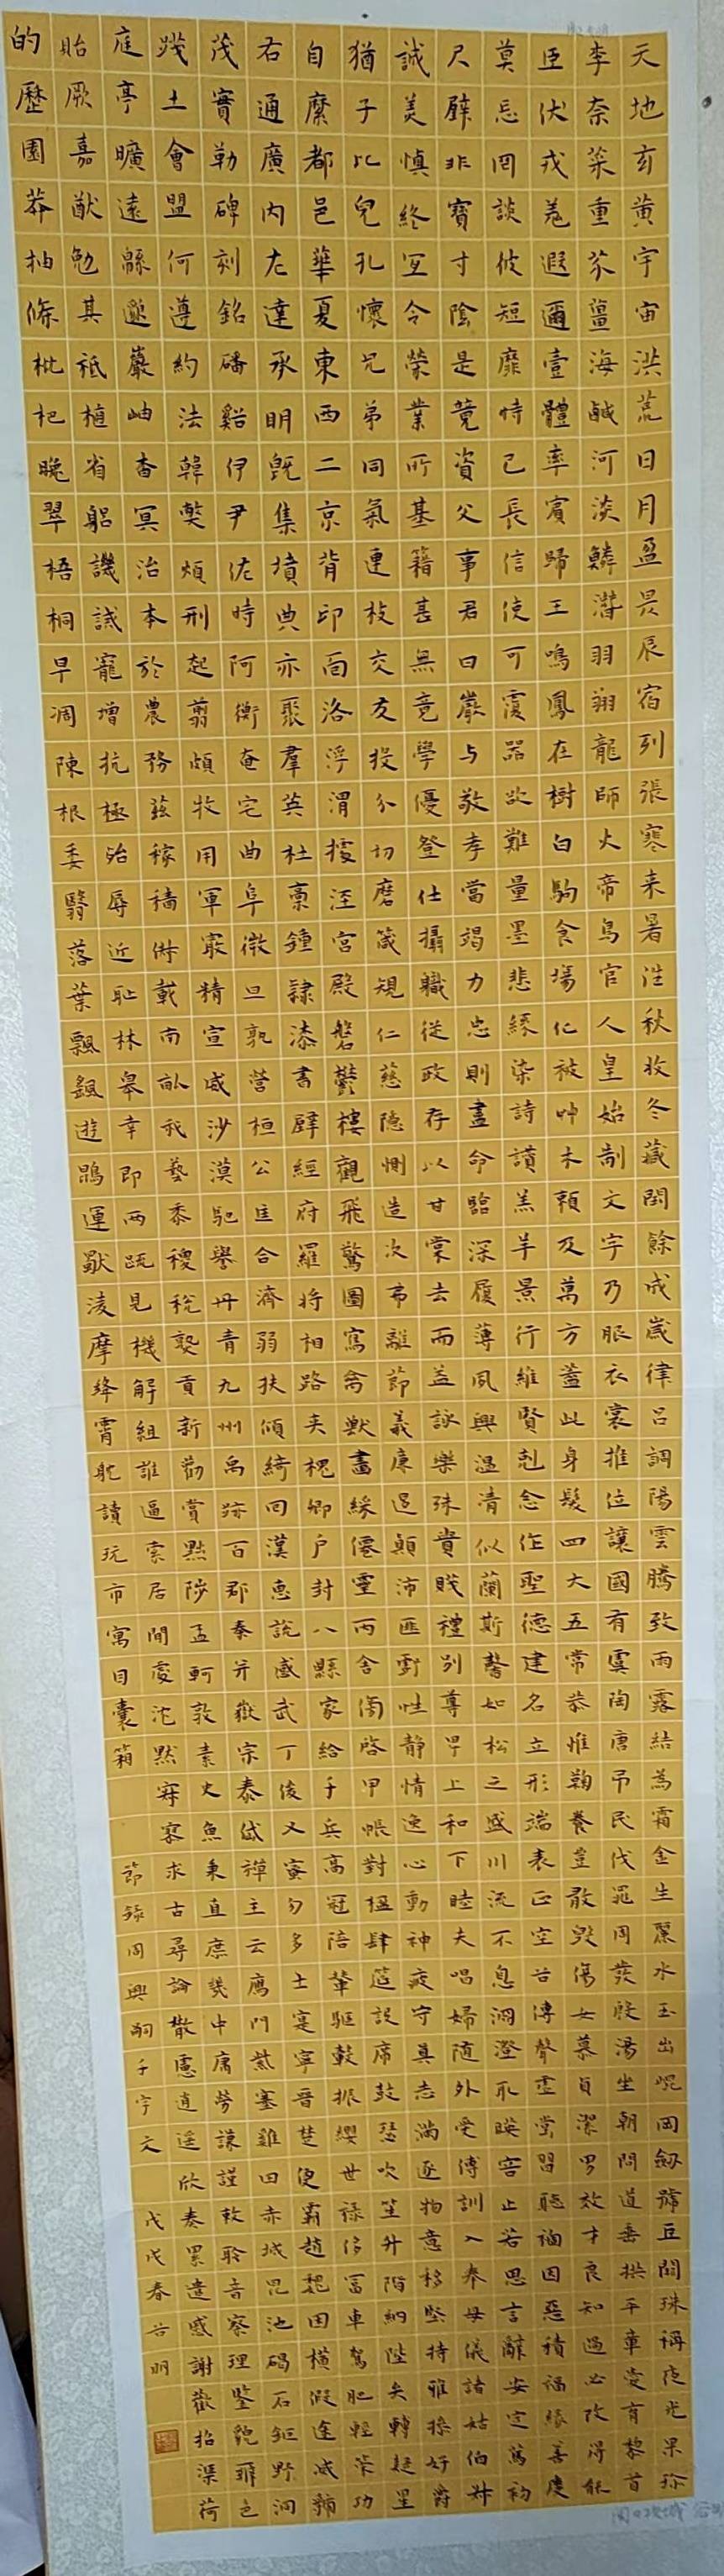 天地玄黃宇宙洪荒日月盈昃辰宿列張寒来暑往秋收冬藏閏餘成歲律呂調陽雲騰致雨露結為霜金生麗水玉出崐岡劔號巨闕珠稱夜光果珍
李奈菜重芥薑海鹹河淡鱗潛羽翔龍師火帝鳥官人皇始制文字乃服衣裳推位讓國有虞陶唐弔民伐罪周發殷湯坐朝問道垂拱平章愛育黎首
臣伏戎羌遐邇壹體率賓歸王鳴鳳在樹白駒食場化被艸木賴及萬方蓋此身髮四大五常恭惟鞠養豈敢毀傷女慕貞潔男效才良知過必改得能
莫忘罔談彼短靡恃己長信使可覆器欲難量墨悲絲染詩讃羔羊景行維賢剋念作聖德建名立形端表正空谷傳聲虛堂習聽禍因惡積福緣善慶
尺璧非寶寸陰是競資父事君曰嚴与敬孝當竭力忠則盡命臨深履薄夙興溫凊似蘭斯馨如松之盛川流不息淵澄取暎容止若思言辭安定篤初
誠美慎終宜令榮業所基籍甚無竟學優登仕攝職從政存以甘棠去而益詠樂殊貴賤禮別尊卑上和下睦夫唱婦随外受傅訓入奉母儀諸姑伯叔
猶子比兒孔懷兄弟同氣連枝交友投分切磨箴規仁慈隱惻造次弗離節義廉退顛沛匪虧性靜情逸心動神疲守真志滿逐物意移堅持雅操好爵
自縻都邑華夏東西二京背邙面洛浮渭據涇宮殿磐鬱樓觀飛驚圖寫禽獸畫綵僊靈丙舍傍啓甲帳對楹肆筵設席鼓瑟吹笙升階納陛弁轉疑星
右通廣內左達承明既集墳典亦聚羣英杜稾鍾隸漆書壁經府羅將相路夾槐卿户封八縣家給千兵高冠陪輦驅轂振纓世祿侈富車駕肥輕策功
茂實勒碑刻銘磻谿伊尹佐時阿衡奄宅曲阜微旦孰營桓公匡合濟弱扶傾綺回漢惠說感武丁俊乂密勿多士寔寧晉楚更霸趙魏困橫假途滅虢
踐土會盟何遵約法韓弊煩刑起翦頗牧用軍最精宣威沙漠馳譽丹青九州禹跡百郡秦并嶽宗泰岱禪主云鴈門紫塞雞田赤城昆池碣石鉅野洞
庭亭曠遠緜邈巖岫杳冥治本於農務茲稼穡俶載南畝我藝黍稷稅熟貢新勸賞黜陟孟軻敦素史魚秉直庶幾中庸勞謙謹敕聆音察理鑒貌辨色
貽厥嘉猷勉其祗植省躬譏誡寵增抗極殆辱近恥林皋幸即兩疏見機解組誰逼索居閒處沈默寂寥求古尋論散慮逍遥欣奏累遣慼謝歡招渠荷
的歷園莽抽條枇杷晚翠梧桐早凋陳根委翳落葉飄颻遊鵾運凌摩絳霄耽讀玩市寓目囊箱
節錄周興嗣千字文
戊戌春谷明